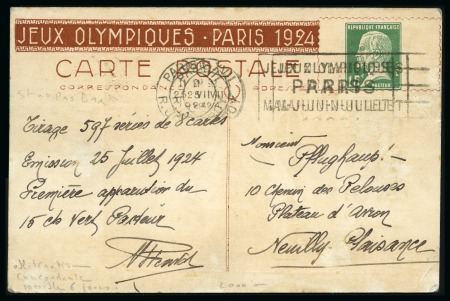 JEUX OLYMPIQUES · PARIS 1924
RÉPUBLIQUE FRANÇAISE
CARTE POSTALE
CORRESPONDANCE
ADRESSE
JEUX OLYMPIQUES
PARIS
MAI-JUIN-JUILLET
Tirage 597 séries de 8 cartes
Emission 25 Juillet 1924
Première apparition du
15 cts Vert Pasteur
Monsieur Pflughaupt
10 Chemin des Pelouses
Plateau d'Avron
Neuilly Plaisance